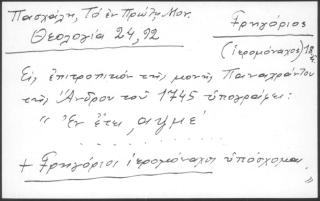 Πασχάλη, Τό ἐν Πρώτῃ Μον.
Θεολογία 24, 92
Γρηγόριος
(ἱερομόναχος) 18
Εἰς ἐπιτροπικόν τῆς μονῆς Παναχράντου
τῆς Ἄνδρου τοῦ 1745 ὑπογράφει:
"Ἐν ἔτει αψμε΄
+ Γρηγόριος ἱερομόναχος ὑπόσχομαι"